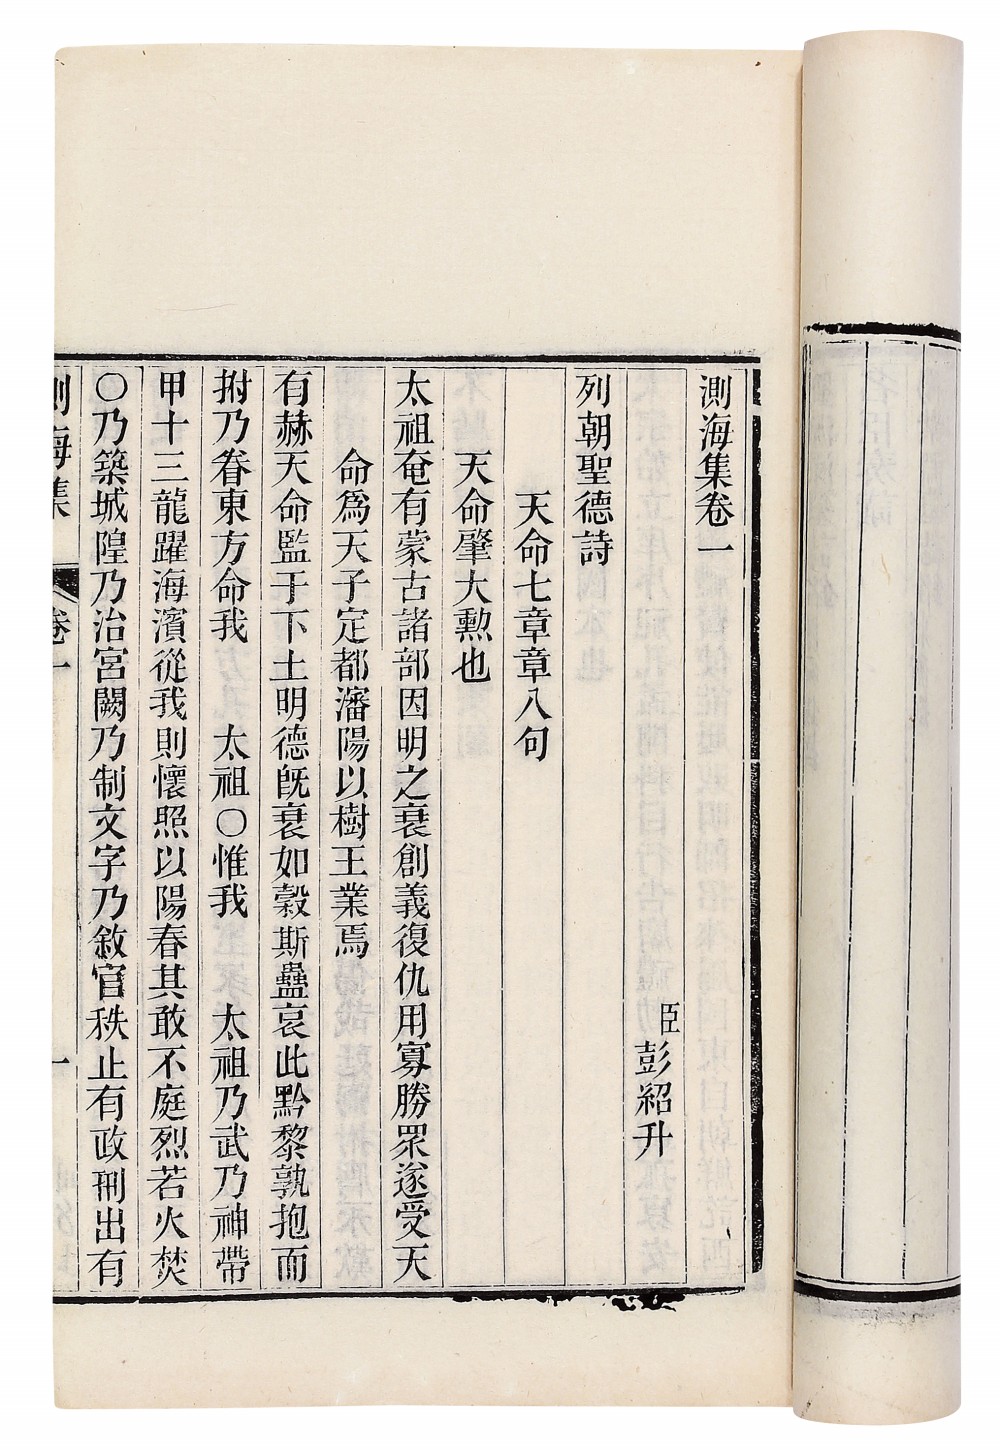 測海集卷一
臣彭紹升
列朝聖德詩
天命七章章八句
天命肇大勲也
太祖奄有蒙古諸部因明之衰創義復仇用寡勝眾遂受天
命爲天子定都瀋陽以樹王業焉
有赫天命監于下土明德旣衰如穀斯蠱哀此黔黎孰抱而
拊乃眷東方命我　太祖〇惟我　太祖乃武乃神帶
甲十三龍躍海濱從我則懷照以陽春其敢不庭烈若火焚
〇乃築城隍乃治宮闕乃制文字乃敘官秩止有政刑出有
測海集　卷一　一